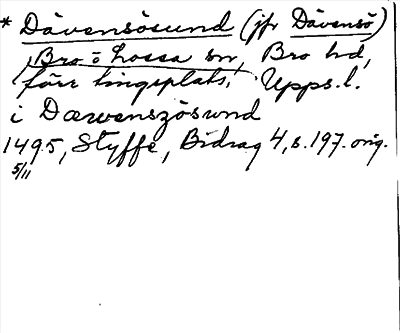 * Dävensösund (jfr Dävensö)
Bro o Lossa sn, Bro hd,
förr tingsplats. Upps. l.
i Dæwenszösund
1495, Styffe, Bidrag 4, s. 197. orig.
5/11